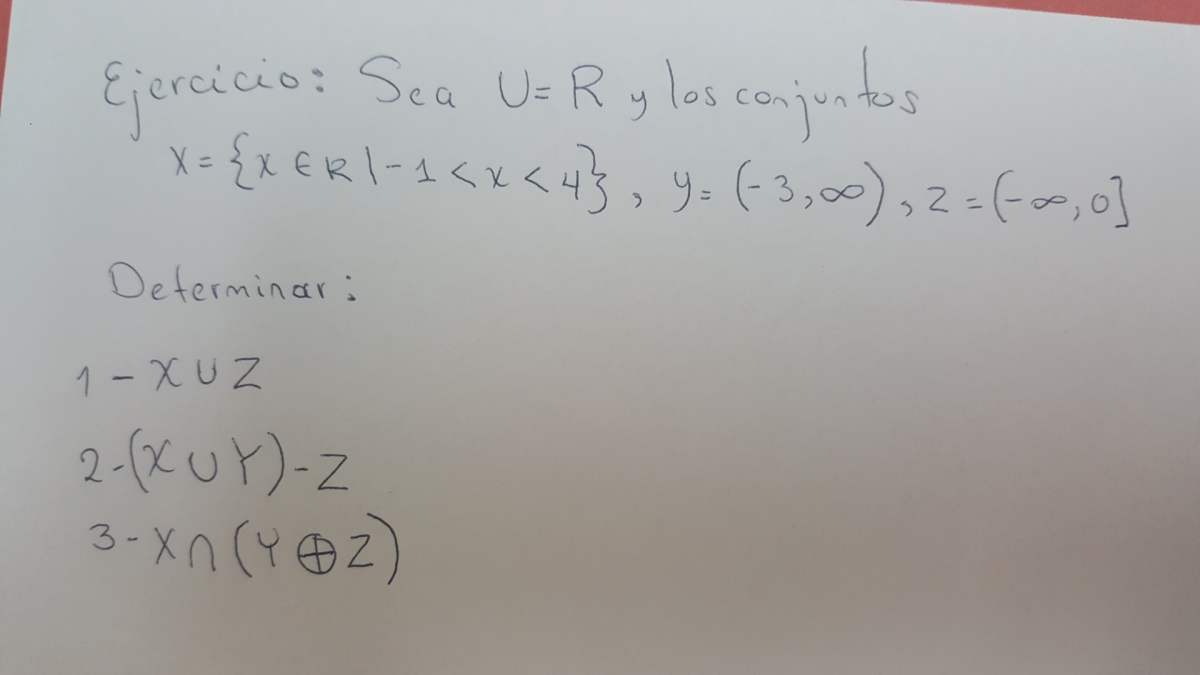 Ejercicio: Sea U=R y los conjuntos
X={x∈R|-1<x<4}, y=(-3,∞), z=(-∞,0]
Determinar:
1-X∪Z
2-(X∪Y)-Z
3-X∩(Y⊕Z)